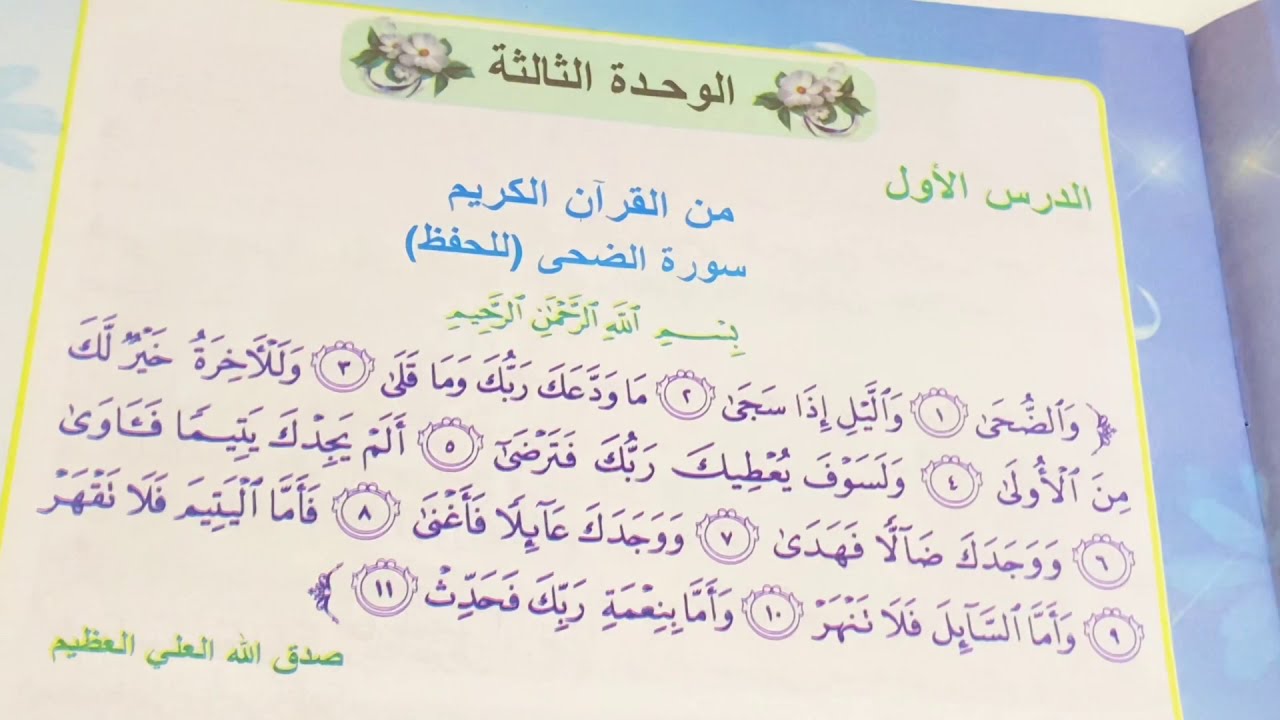 الوحدة الثالثة
الدرس الأول
من القرآن الكريم
سورة الضحى (للحفظ)
بِسْمِ ٱللَّهِ ٱلرَّحْمَٰنِ ٱلرَّحِيمِ
﴿ وَٱلضُّحَىٰ ١ وَٱلَّيْلِ إِذَا سَجَىٰ ٢ مَا وَدَّعَكَ رَبُّكَ وَمَا قَلَىٰ ٣ وَلَلْأَخِرَةُ خَيْرٌ لَّكَ
مِنَ ٱلْأُولَىٰ ٤ وَلَسَوْفَ يُعْطِيكَ رَبُّكَ فَتَرْضَىٰٓ ٥ أَلَمْ يَجِدْكَ يَتِيمًا فَـَٔاوَىٰ
٦ وَوَجَدَكَ ضَآلًّا فَهَدَىٰ ٧ وَوَجَدَكَ عَآئِلًا فَأَغْنَىٰ ٨ فَأَمَّا ٱلْيَتِيمَ فَلَا تَقْهَرْ
٩ وَأَمَّا ٱلسَّآئِلَ فَلَا تَنْهَرْ ١٠ وَأَمَّا بِنِعْمَةِ رَبِّكَ فَحَدِّثْ ١١ ﴾
صدق الله العلي العظيم